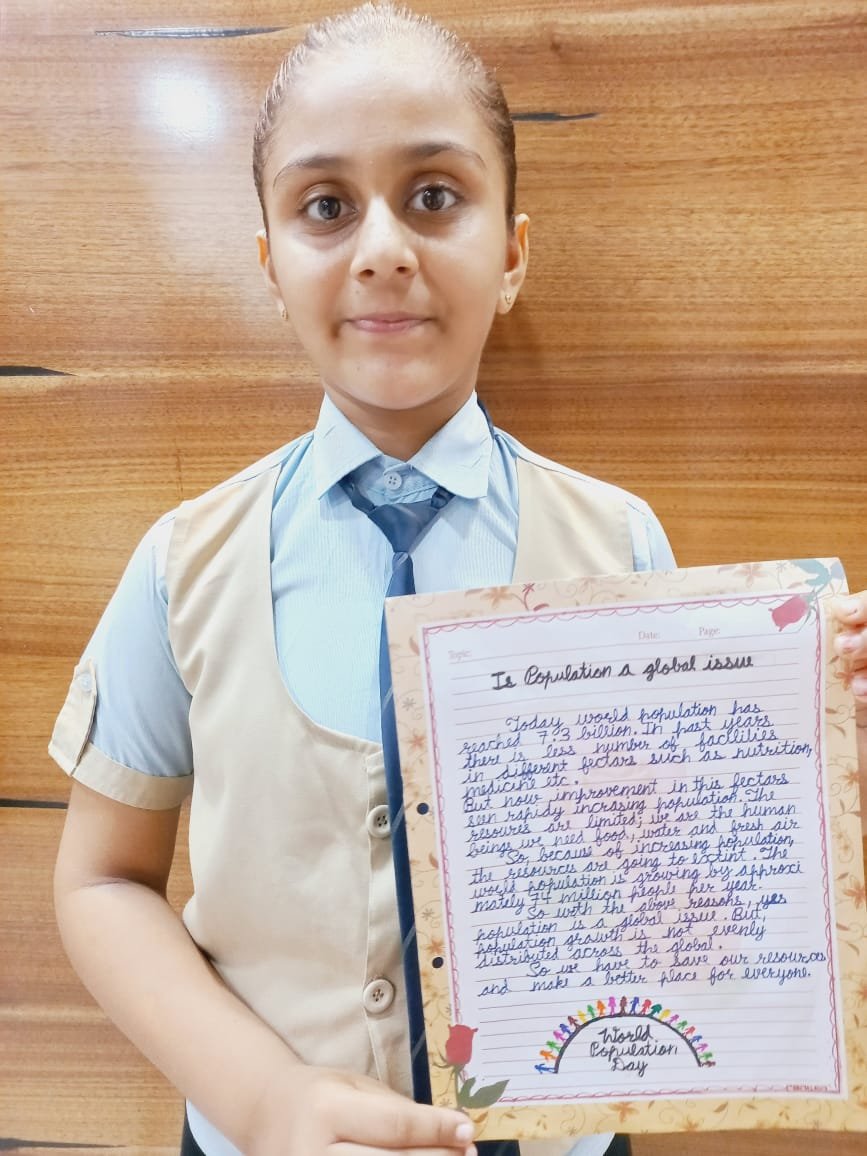 Date: Page:
Topic:
Is Population a global issue
Today world population has
reached 7.3 billion. In past years
there is less number of facilities
in different fectars such as nutrition,
medicine etc.
But now improvement in this fectars
seen rapidy incrasing population. The
resoures are limited; we are the human
beings we need food, water and fresh air
So, because of increasing population,
the resources are going to extint. The
world population is growing by approxi
mately 74 million people per year.
So with the above reasons, yes
population is a global issue. But,
population growth is not evenly
distributed across the global.
So we have to save our resources
and make a better place for everyone.
World
Population
Day